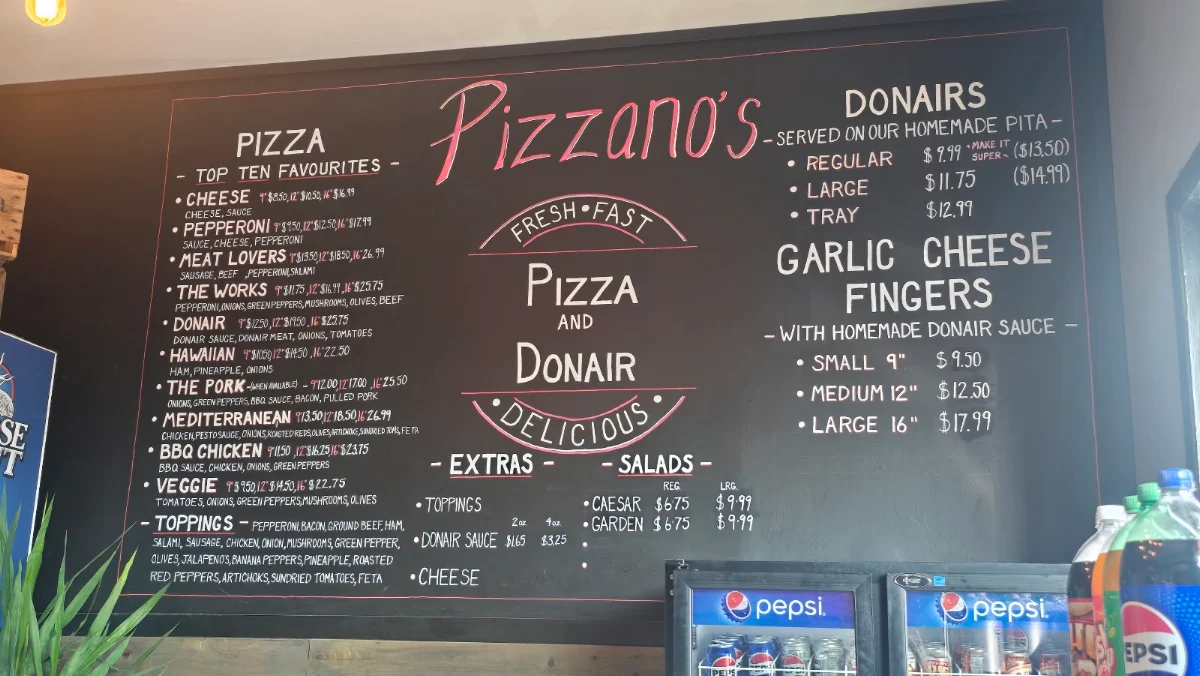 Pizzano's
FRESH • FAST
PIZZA
AND
DONAIR
• DELICIOUS •
PIZZA
- TOP TEN FAVOURITES -
• CHEESE 9"$8.50, 12"$10.50, 16"$16.99
CHEESE, SAUCE
• PEPPERONI 9"$9.50, 12"$12.50, 16"$17.99
SAUCE, CHEESE, PEPPERONI
• MEAT LOVERS 9"$13.50, 12"$18.50, 16"26.99
SAUSAGE, BEEF , PEPPERONI, SALAMI
• THE WORKS 9"$11.75, 12"$16.99, 16"$25.75
PEPPERONI, ONIONS, GREEN PEPPERS, MUSHROOMS, OLIVES, BEEF
• DONAIR 9"$12.50, 12"$19.50, 16"$25.75
DONAIR SAUCE, DONAIR MEAT, ONIONS, TOMATOES
• HAWAIIAN 9"$10.50, 12"$14.50, 16"22.50
HAM, PINEAPPLE, ONIONS
• THE PORK -(WHEN AVAILABLE) - 9"12.00, 12"17.00, 16"25.50
ONIONS, GREEN PEPPERS, BBQ SAUCE, BACON, PULLED PORK
• MEDITERRANEAN 9"13.50, 12"18.50, 16"26.99
CHICKEN, PESTO SAUCE, ONIONS, ROASTED REDS, OLIVES, ARTICHOKS, SUNDRIED TOMS, FETA
• BBQ CHICKEN 9"11.50, 12"$16.25, 16"$23.75
BBQ SAUCE, CHICKEN, ONIONS, GREEN PEPPERS
• VEGGIE 9"$9.50, 12"$14.50, 16"$22.75
TOMATOES, ONIONS, GREEN PEPPERS, MUSHROOMS, OLIVES
- TOPPINGS - PEPPERONI, BACON, GROUND BEEF, HAM,
SALAMI, SAUSAGE, CHICKEN, ONION, MUSHROOMS, GREEN PEPPER,
OLIVES, JALAPENO'S, BANANA PEPPERS, PINEAPPLE, ROASTED
RED PEPPERS, ARTICHOKS, SUNDRIED TOMATOES, FETA
- EXTRAS -
• TOPPINGS
2oz 4oz
• DONAIR SAUCE $1.65 $3.25
• CHEESE
- SALADS -
REG. LRG.
• CAESAR $6.75 $9.99
• GARDEN $6.75 $9.99
DONAIRS
- SERVED ON OUR HOMEMADE PITA -
• REGULAR $9.99 *MAKE IT SUPER- ($13.50)
• LARGE $11.75 ($14.99)
• TRAY $12.99
GARLIC CHEESE
FINGERS
- WITH HOMEMADE DONAIR SAUCE -
• SMALL 9" $9.50
• MEDIUM 12" $12.50
• LARGE 16" $17.99
pepsi
pepsi
EPSI